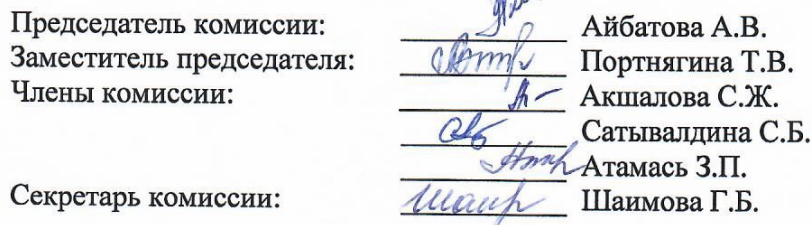 Председатель комиссии: Айбатова А.В.
Заместитель председателя: Портнягина Т.В.
Члены комиссии: Акшалова С.Ж.
Сатывалдина С.Б.
Атамась З.П.
Секретарь комиссии: Шаимова Г.Б.